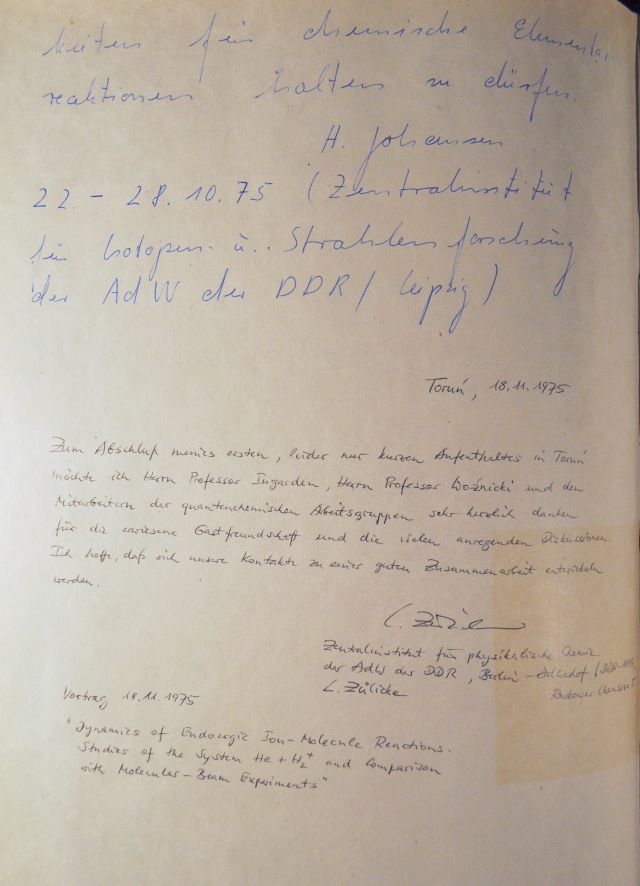 keiten für chemische Elementar-
reaktionen halten zu dürfen.
H. Johansen
22. - 28.10.75 (Zentralinstitut
für Isotopen- u. Strahlenforschung
der AdW der DDR / Leipzig)
Toruń, 18.11.1975
Zum Abschluß meines ersten, leider nur kurzen Aufenthaltes in Toruń
möchte ich Herrn Professor Ingarden, Herrn Professor Woźnicki und den
Mitarbeitern der quantenchemischen Arbeitsgruppen sehr herzlich danken
für die erwiesene Gastfreundschaft und die vielen anregenden Diskussionen.
Ich hoffe, daß sich unsere Kontakte zu einer guten Zusammenarbeit entwickeln
werden.
L. Zülicke
Zentralinstitut für physikalische Chemie
der AdW der DDR, Berlin-Adlershof (DDR-1199,
Rudower Chaussee 5
L. Zülicke
Vortrag 18.11.1975
"Dynamics of Endoergic Ion-Molecule Reactions.
Studies of the System He + H₂⁺ and Comparison
with Molecular-Beam Experiments"